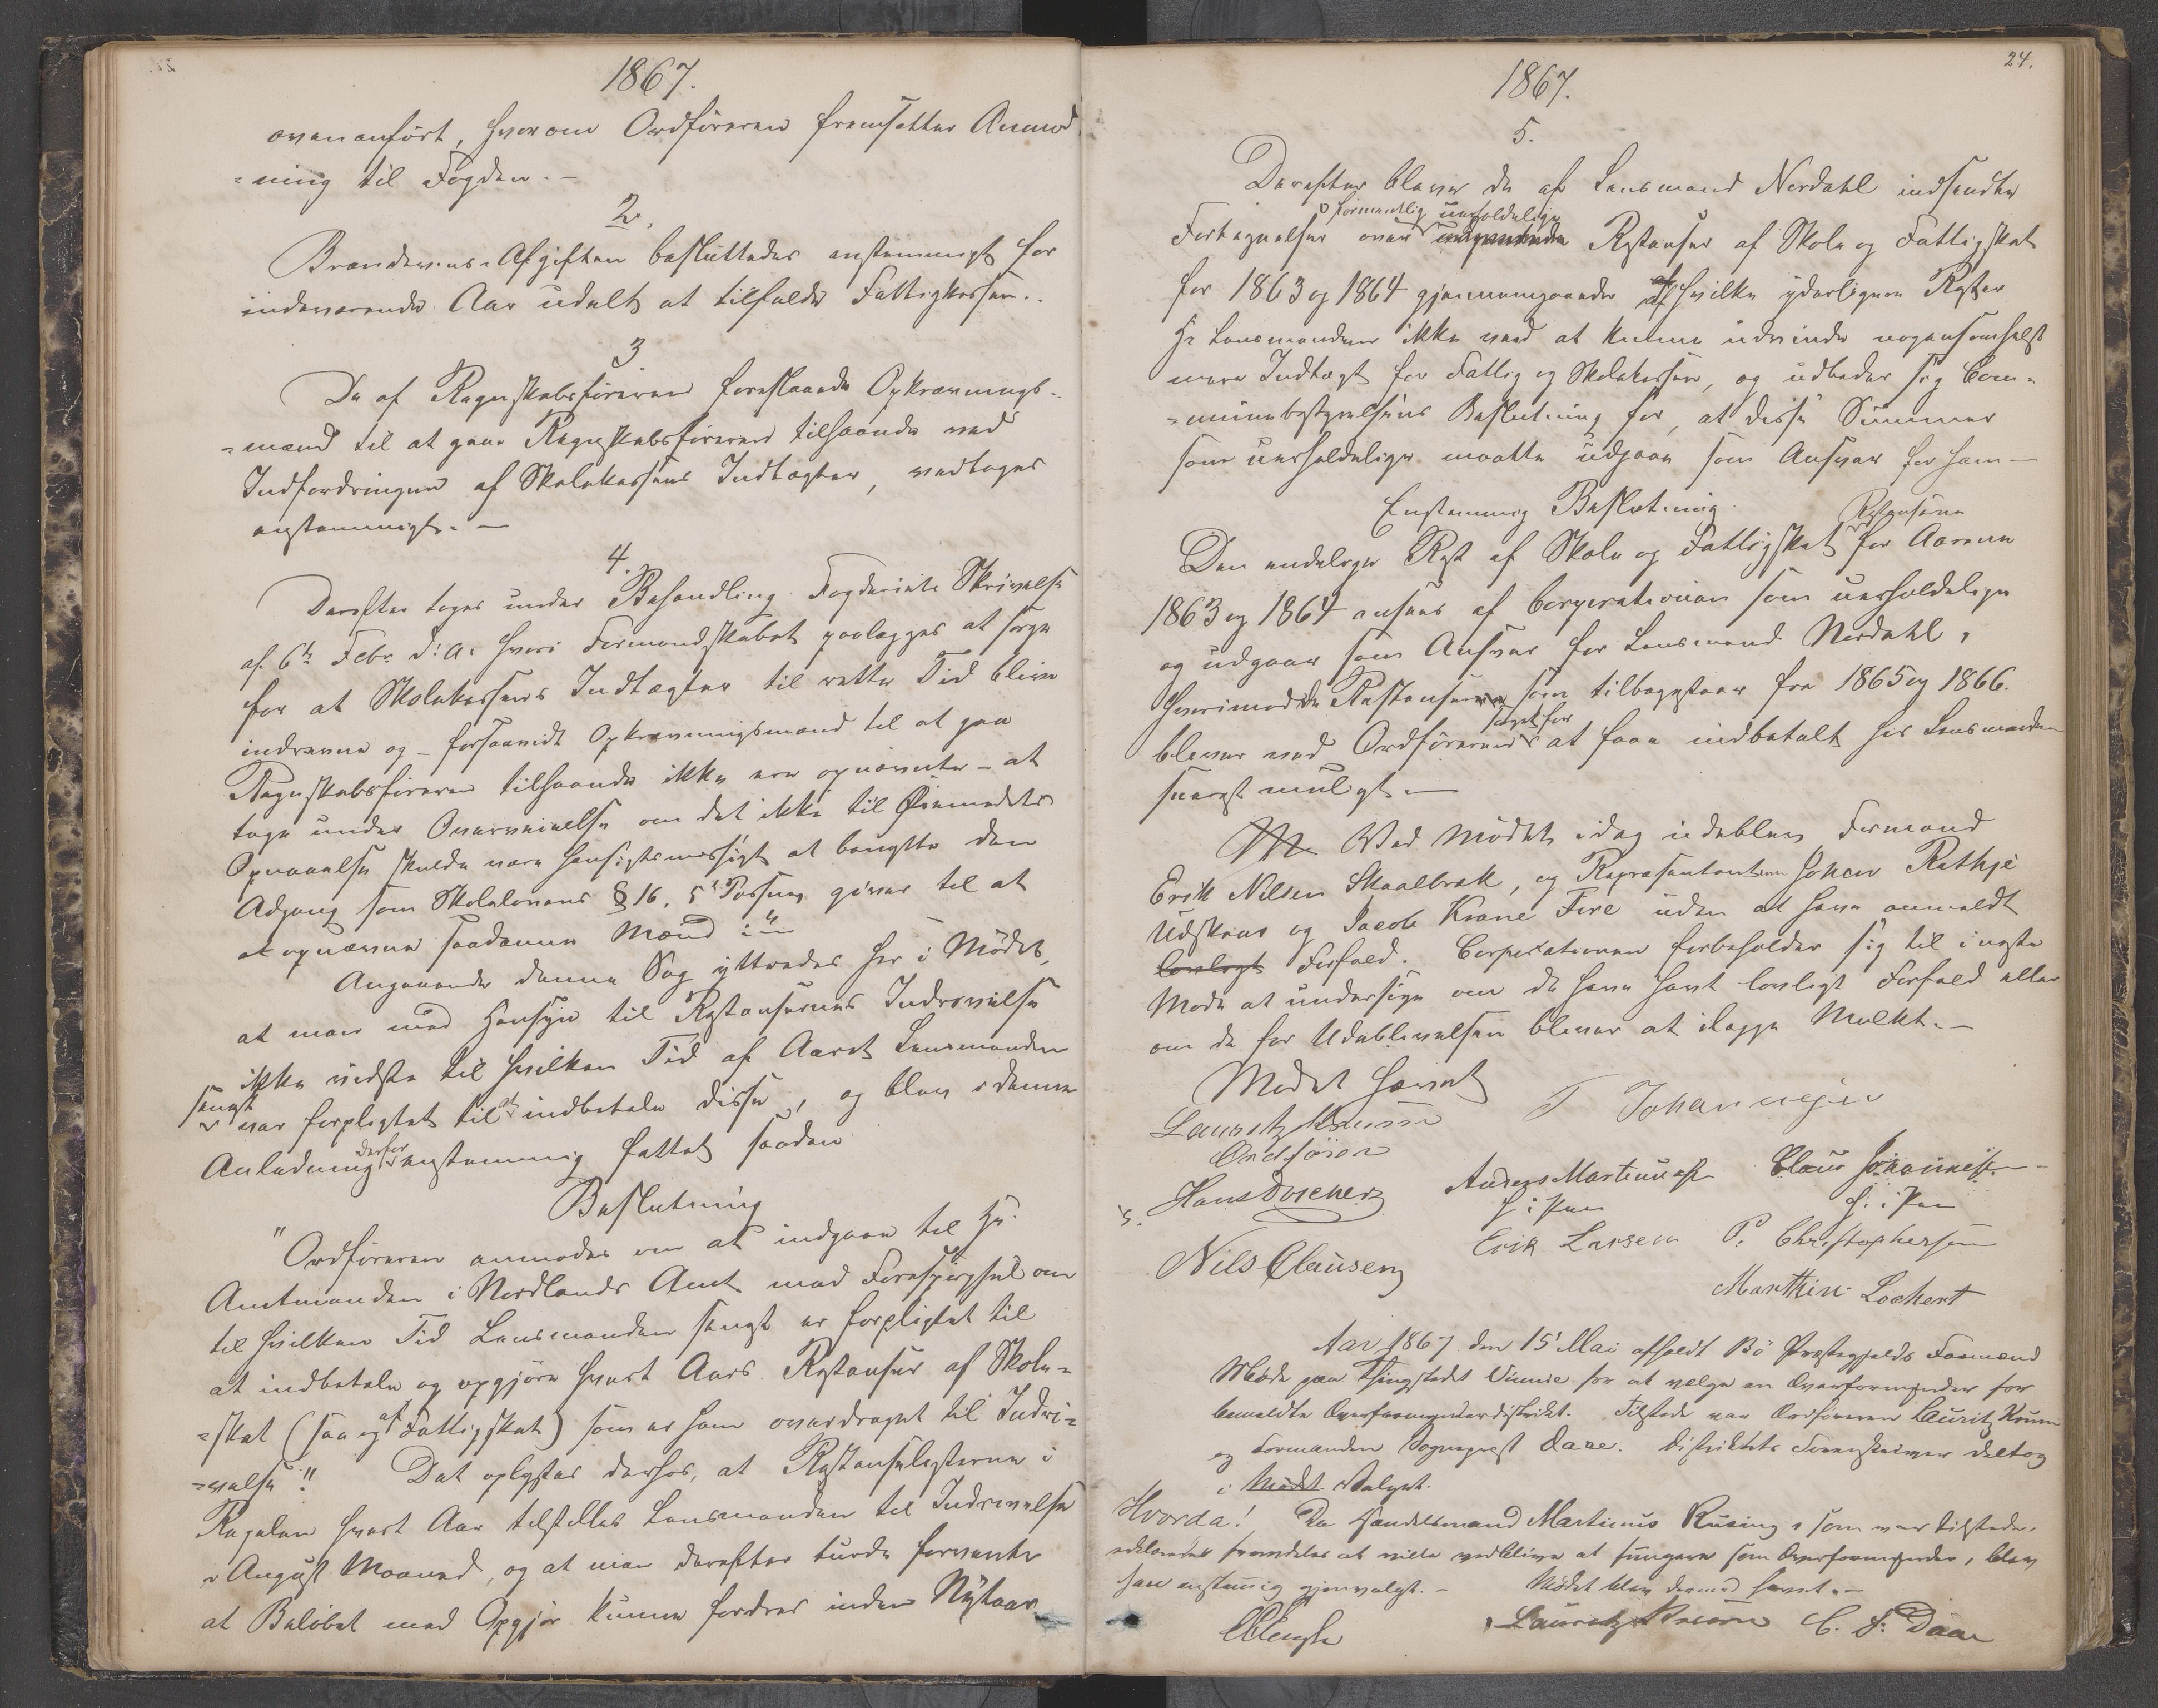 1867.
ovenanført, hvorom Ordføreren fremsætter Anmod
=ning til Fogden. -
2.
Brændevins-Afgiften besluttedes enstemmigt for
indeværende Aar udelt at tilfalde Fattigkassen..
3
De af Regnskabsføreren foreslaaede Opkrævnings-
=mænd til at gaae Regnskabsføreren tilhaande ved
Indfordringen af Skolekassens Indtægter, vedtoges
enstemmigt. -
4.
Derefter toges under Behandling Fogderiets Skrivelse
af 6te Febr d: A: hvori Formandskabet paalægges at sørge
for at Skolekassens Indtægter til rette Tid blive
indrevne og - forsaavidt Opkrævningsmænd til at gaa
Regnskabsføreren tilhaande ikke ere opnævnte - at
tage under Overveielse om det ikke til Øiemedets
Opnaaelse skulde være hensigtsmæssigt at benytte den
Adgang som Skolelovens § 16, 5te Passus giver til at
at opnævne saadanne Mænd :"
Angaaende denne Sag yttredes her i Mødet,
at man med Hensyn til Restansernes Inddrivelse
ikke vidste til hvilken Tid af Aaret Lensmanden
senest
var forpligtet til at indbetale disse, og blev i denne
Anledning derfor enstemmig fattet saadan
Beslutning
"Ordføreren anmodes om at indgaae til Hr.
Amtmanden i Nordlands Amt med Forespørgsel om
til hvilken Tid Lensmanden senest er forpligtet til
at indbetale og opgjøre hvert Aars Restanser af Skole=
=skat (saa og af Fattigskat) som er ham overdraget til Inddri=
=velse". Det oplystes derhos, at Restanselisterne i
Regelen hvert Aar tilstilles Lensmanden til Inddrivelse
i August Maaned, og at man derefter turde forvente
at Beløbet med Opgjør kunne fordres inden Nytaar.
24.
1867.
5.
Derefter bleve de af Lensmand Nordahl indsendte
formentlig uerholdelige
Fortegnelser over Restanser af Skole og Fattigskat
for 1863 og 1864 gjennemgaaede af hvilke yderligere Rester
Hr Lensmanden ikke ved at kunne inddrive nogensomhelst
mere Indtægt for Fattig og Skolekassen, og udbeder sig Com-
=munebestyrelsens Beslutning for, at disse Summer
som uerholdelige maatte udgaae som Ansvar for ham -
Enstemmig Beslutning.
Restanserne
Den endelige Rest af Skole og Fattigskat for Aarene
1863 og 1864 ansees af Corporationen som uerholdelige
og udgaar som Ansvar for Lensmand Nordahl,
hvorimod de Restanser som tilbagestaar fra 1865 og 1866.
søgt for
blever ved Ordføreren at faae indbetalt hos Lensmanden
snarest muligt. -
Ved Mødet idag udeblev Formand
Erik Nilsen Skaalbrak, og Repræsentanterne Johan Rathje
Udskaar og Jacob Krane Fire uden at have anmeldt
lovlegt Forfald. Corporationen forbeholder sig til i næste
Møde at undersøge om de have havt lovligt Forfald eller
om de for Udeblivelsen blever at ilægge Mulkt. -
Mødet hævet
Lauritz Krum T Johannesen
Ordfører
Hans Docherz Anders Martinussen Claus Johannesen
h: i Pen h: i Pen
Nils Clausen Erik Larsen P. Christophersen
Marthin Lochert
Aar 1867 den 15' Mai afholdt Bø Præstegjelds Formænd
Møde paa Thingstedet Vinnie for at vælge en Overformynder for
bemeldte Overformynderdistrikt. Tilstede var Ordføreren Lauritz Krum
og Formanden Sogneprest Daae. Distriktets Sorenskriver deltog
i Mødet Valget.
Hvorda! Da Handelsmand Martinus Rusing, som var tilstede,
erklærede fremdeles at ville vedblive at fungere som Overformynder, blev
han enstemmig gjenvalgt. - Mødet blev dermed hævet. -
Lauritz Krum C. F. Daae